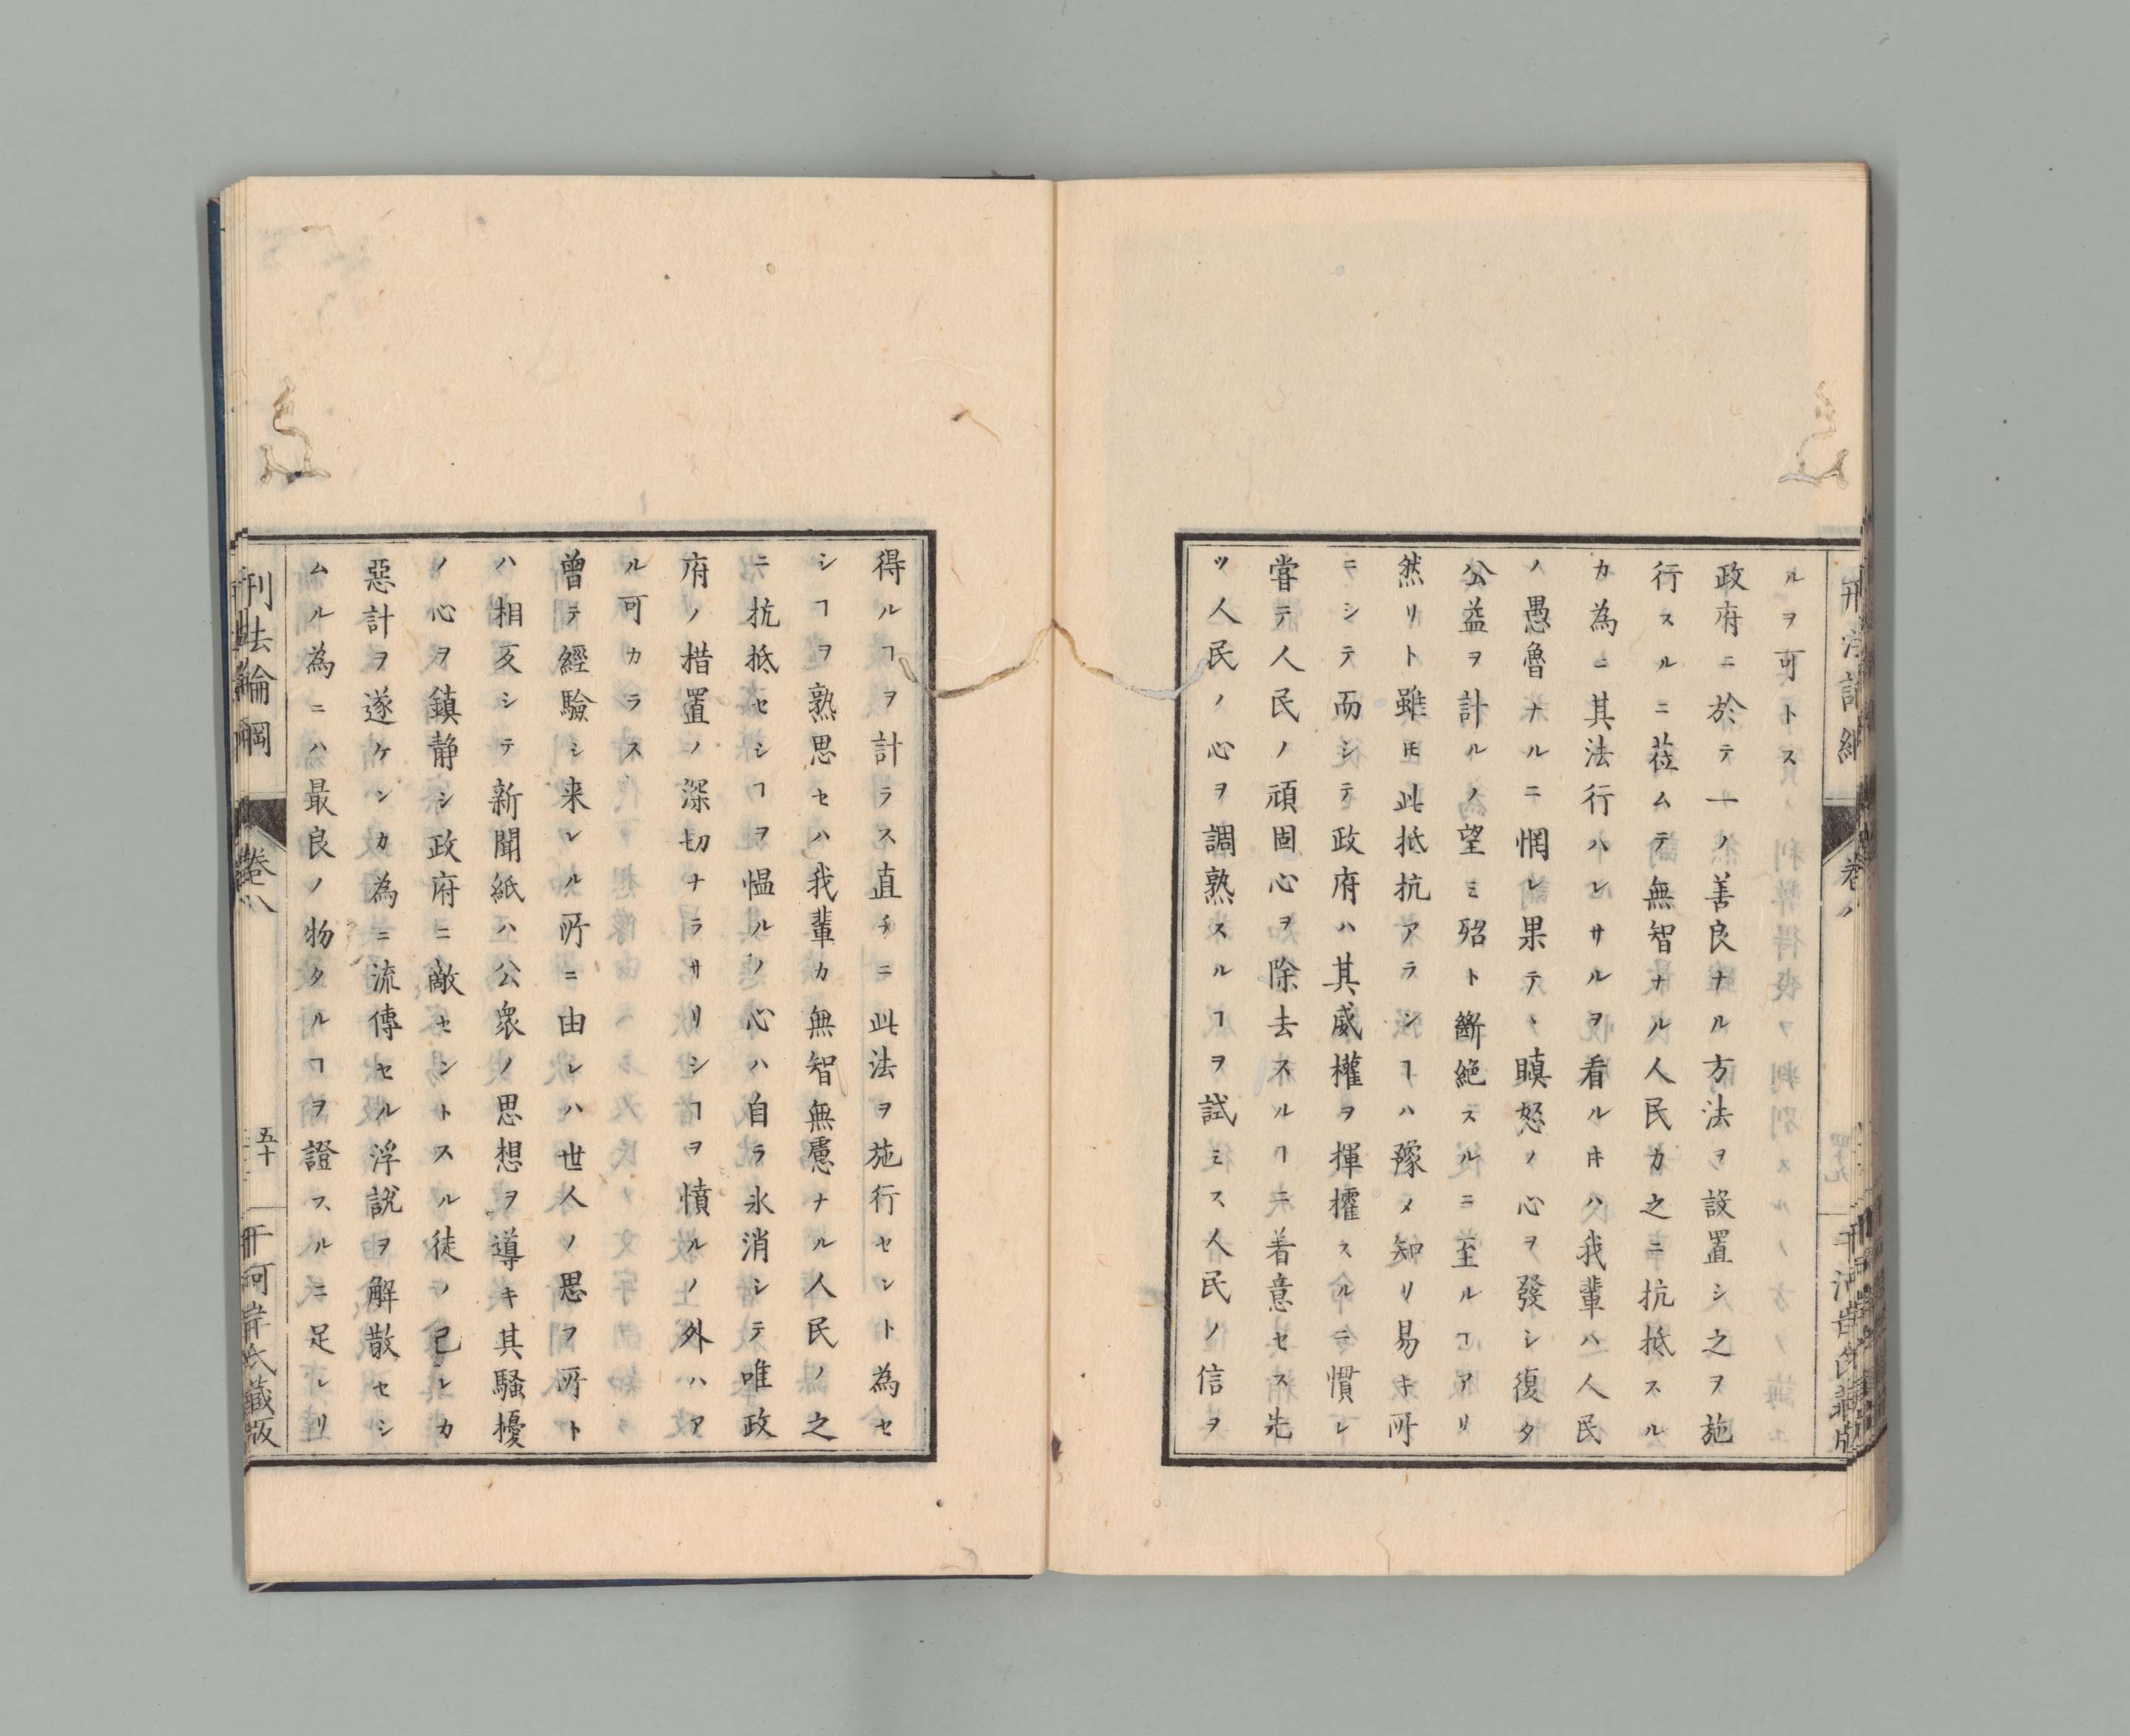 ルヲ可トス
政府ニ於テ一ノ善良ナル方法ヲ設置シ之ヲ施
行スルニ莅ムテ無智ナル人民カ之ニ抗抵スル
カ為ニ其法行ハレサルヲ看ルキハ我輩ハ人民
ノ愚魯ナルニ惘レ果テヽ瞋怒ノ心ヲ發シ復タ
公益ヲ計ルノ望ミ殆ト斷絶スルニ至ルヿアリ
然リト雖モ此抵抗アランヿハ豫メ知リ易キ所
ニシテ而シテ政府ハ其威權ヲ揮擢スルニ慣レ
嘗テ人民ノ頑固心ヲ除去スルヿニ着意セス先
ツ人民ノ心ヲ調熟スルヿヲ試ミス人民ノ信ヲ
得ルヿヲ計ラス直チニ此法ヲ施行セント為セ
シヿヲ熟思セハ我輩カ無智無慮ナル人民ノ之
ニ抗抵セシヿヲ愠ルノ心ハ自ラ氷消シテ唯政
府ノ措置ノ深切ナラサリシヿヲ憤ルノ外ハア
ル可カラス
曾テ經驗シ来レル所ニ由レハ世人ノ思フ所ト
ハ相反シテ新聞紙ハ公衆ノ思想ヲ導キ其騷擾
ノ心ヲ鎮静シ政府ニ敵セントスル徒ノ己レカ
惡計ヲ遂ケンカ為ニ流傳セル浮説ヲ解散セシ
ムル為ニハ最良ノ物タルヿヲ證スルニ足レリ
刑法論綱
卷八
五十
干河岸氏藏版